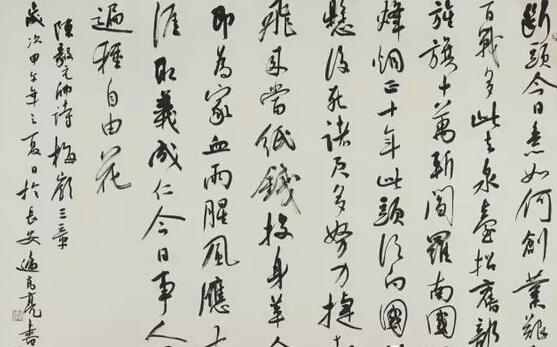 断頭今日意如何創業艱
百戰多此去泉臺招舊部
旌旗十萬斬閻羅南國
烽烟正十年此頭須向國
懸後死諸君多努力捷
飛來當紙錢投身革命
即為家血雨腥風應
涯取義成仁今日事人
遍種自由花
陳毅元帥詩梅嶺三章
歲次甲午年之夏日於長安 高亮書